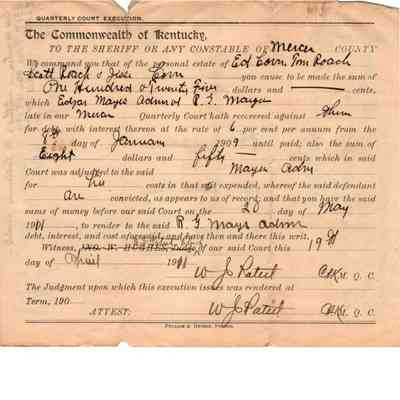 QUARTERLY COURT EXECUTION.
The Commonwealth of Kentucky.
TO THE SHERIFF OR ANY CONSTABLE OF Mercer COUNTY
We command you that of the personal estate of Ed Corn, Tom Roach
Scott Roach & Corn you cause to be made the sum of
One Hundred & Twenty Five dollars and cents,
which Edgar Mayes Admr of R. G. Mayes
late in our Mercer Quarterly Court hath recovered against them
for debt with interest thereon at the rate of 6 per cent per annum from the
8th day of January 1909 until paid; also the sum of
Eight dollars and fifty cents which in said
Court was adjudged to the said Mayes Adm
for his costs in that suit expended, whereof the said defendant
are convicted, as appears to us of record; and that you have the said
sums of money before our said Court on the 20 day of May
1911, to render to the said R. G. Mays admr
debt, interest, and cost aforesaid, and have then and there this writ.
Witness, GEO. W. HUGHES, Judge of our said Court this 19th
day of April 1911
W J Patent Clk M. Q. C.
The Judgment upon which this execution issues was rendered at
Term, 190
ATTEST: W J Patent Clk M. Q. C.